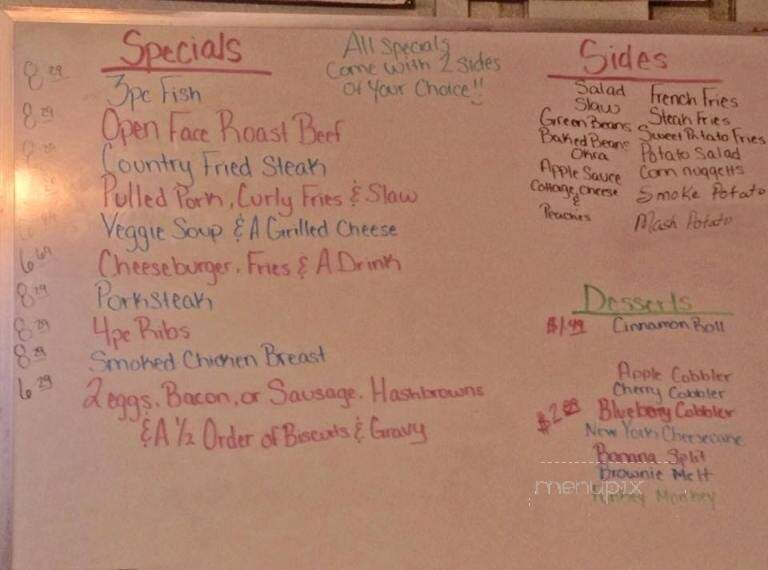 Specials
All Specials
Come with 2 Sides
Of Your Choice!!
8 29 3pc Fish
8 29 Open Face Roast Beef
Country Fried Steak
Pulled Pork, Curly Fries & Slaw
Veggie Soup & A Grilled Cheese
6 69 Cheeseburger, Fries & A Drink
8 29 Porksteak
8 29 4pc Ribs
8 29 Smoked Chicken Breast
6 29 2 eggs, Bacon, or Sausage, Hashbrowns
& A 1/2 Order of Biscuits & Gravy
Sides
Salad
Slaw
Green Beans
Baked Beans
Okra
Apple Sauce
Cottage Cheese
&
Peaches
French Fries
Steak Fries
Sweet Potato Fries
Potato Salad
Corn nuggetts
Smoke Potato
Mash Potato
Desserts
$1.49 Cinnamon Roll
Apple Cobbler
Cherry Cobbler
$2 Blueberry Cobbler
New York Cheesecake
Banana Split
Brownie Melt
Monkey
menupix